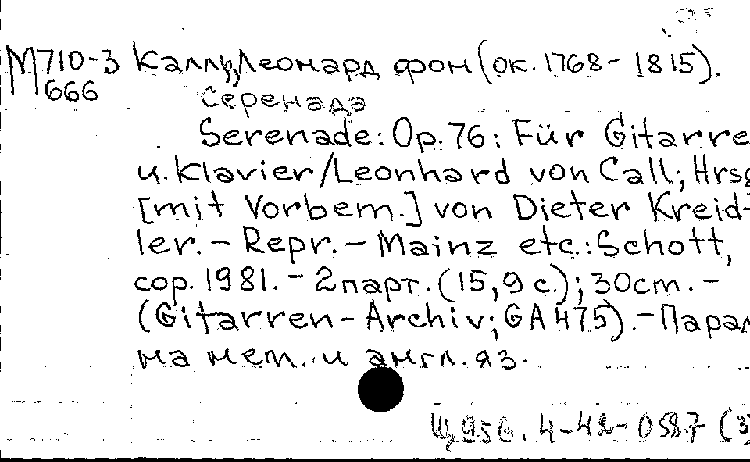 М710-3 Калль, Леонард фон (ок. 1768 - 1815).
666
Серенада
Serenade: Op. 76: Für Gitarre
u. Klavier / Leonhard von Call; Hrsg
[mit Vorbem.] von Dieter Kreid-
ler. - Repr. - Mainz etc.: Schott,
cop. 1981. - 2 парт. (15, 9 с.); 30 cm. -
(Gitarren - Archiv; GA 475). - Парал
на нем. и англ. яз.